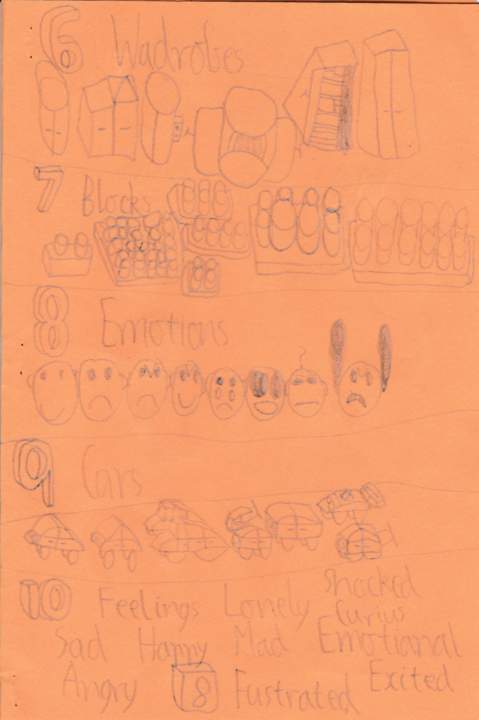 6 Wadrobes
7 Blocks
8 Emotions
9 Cars
10 Feelings Lonely Shocked
Curius
Sad Happy Mad Emotional
Angry 8 Fustrated Exited